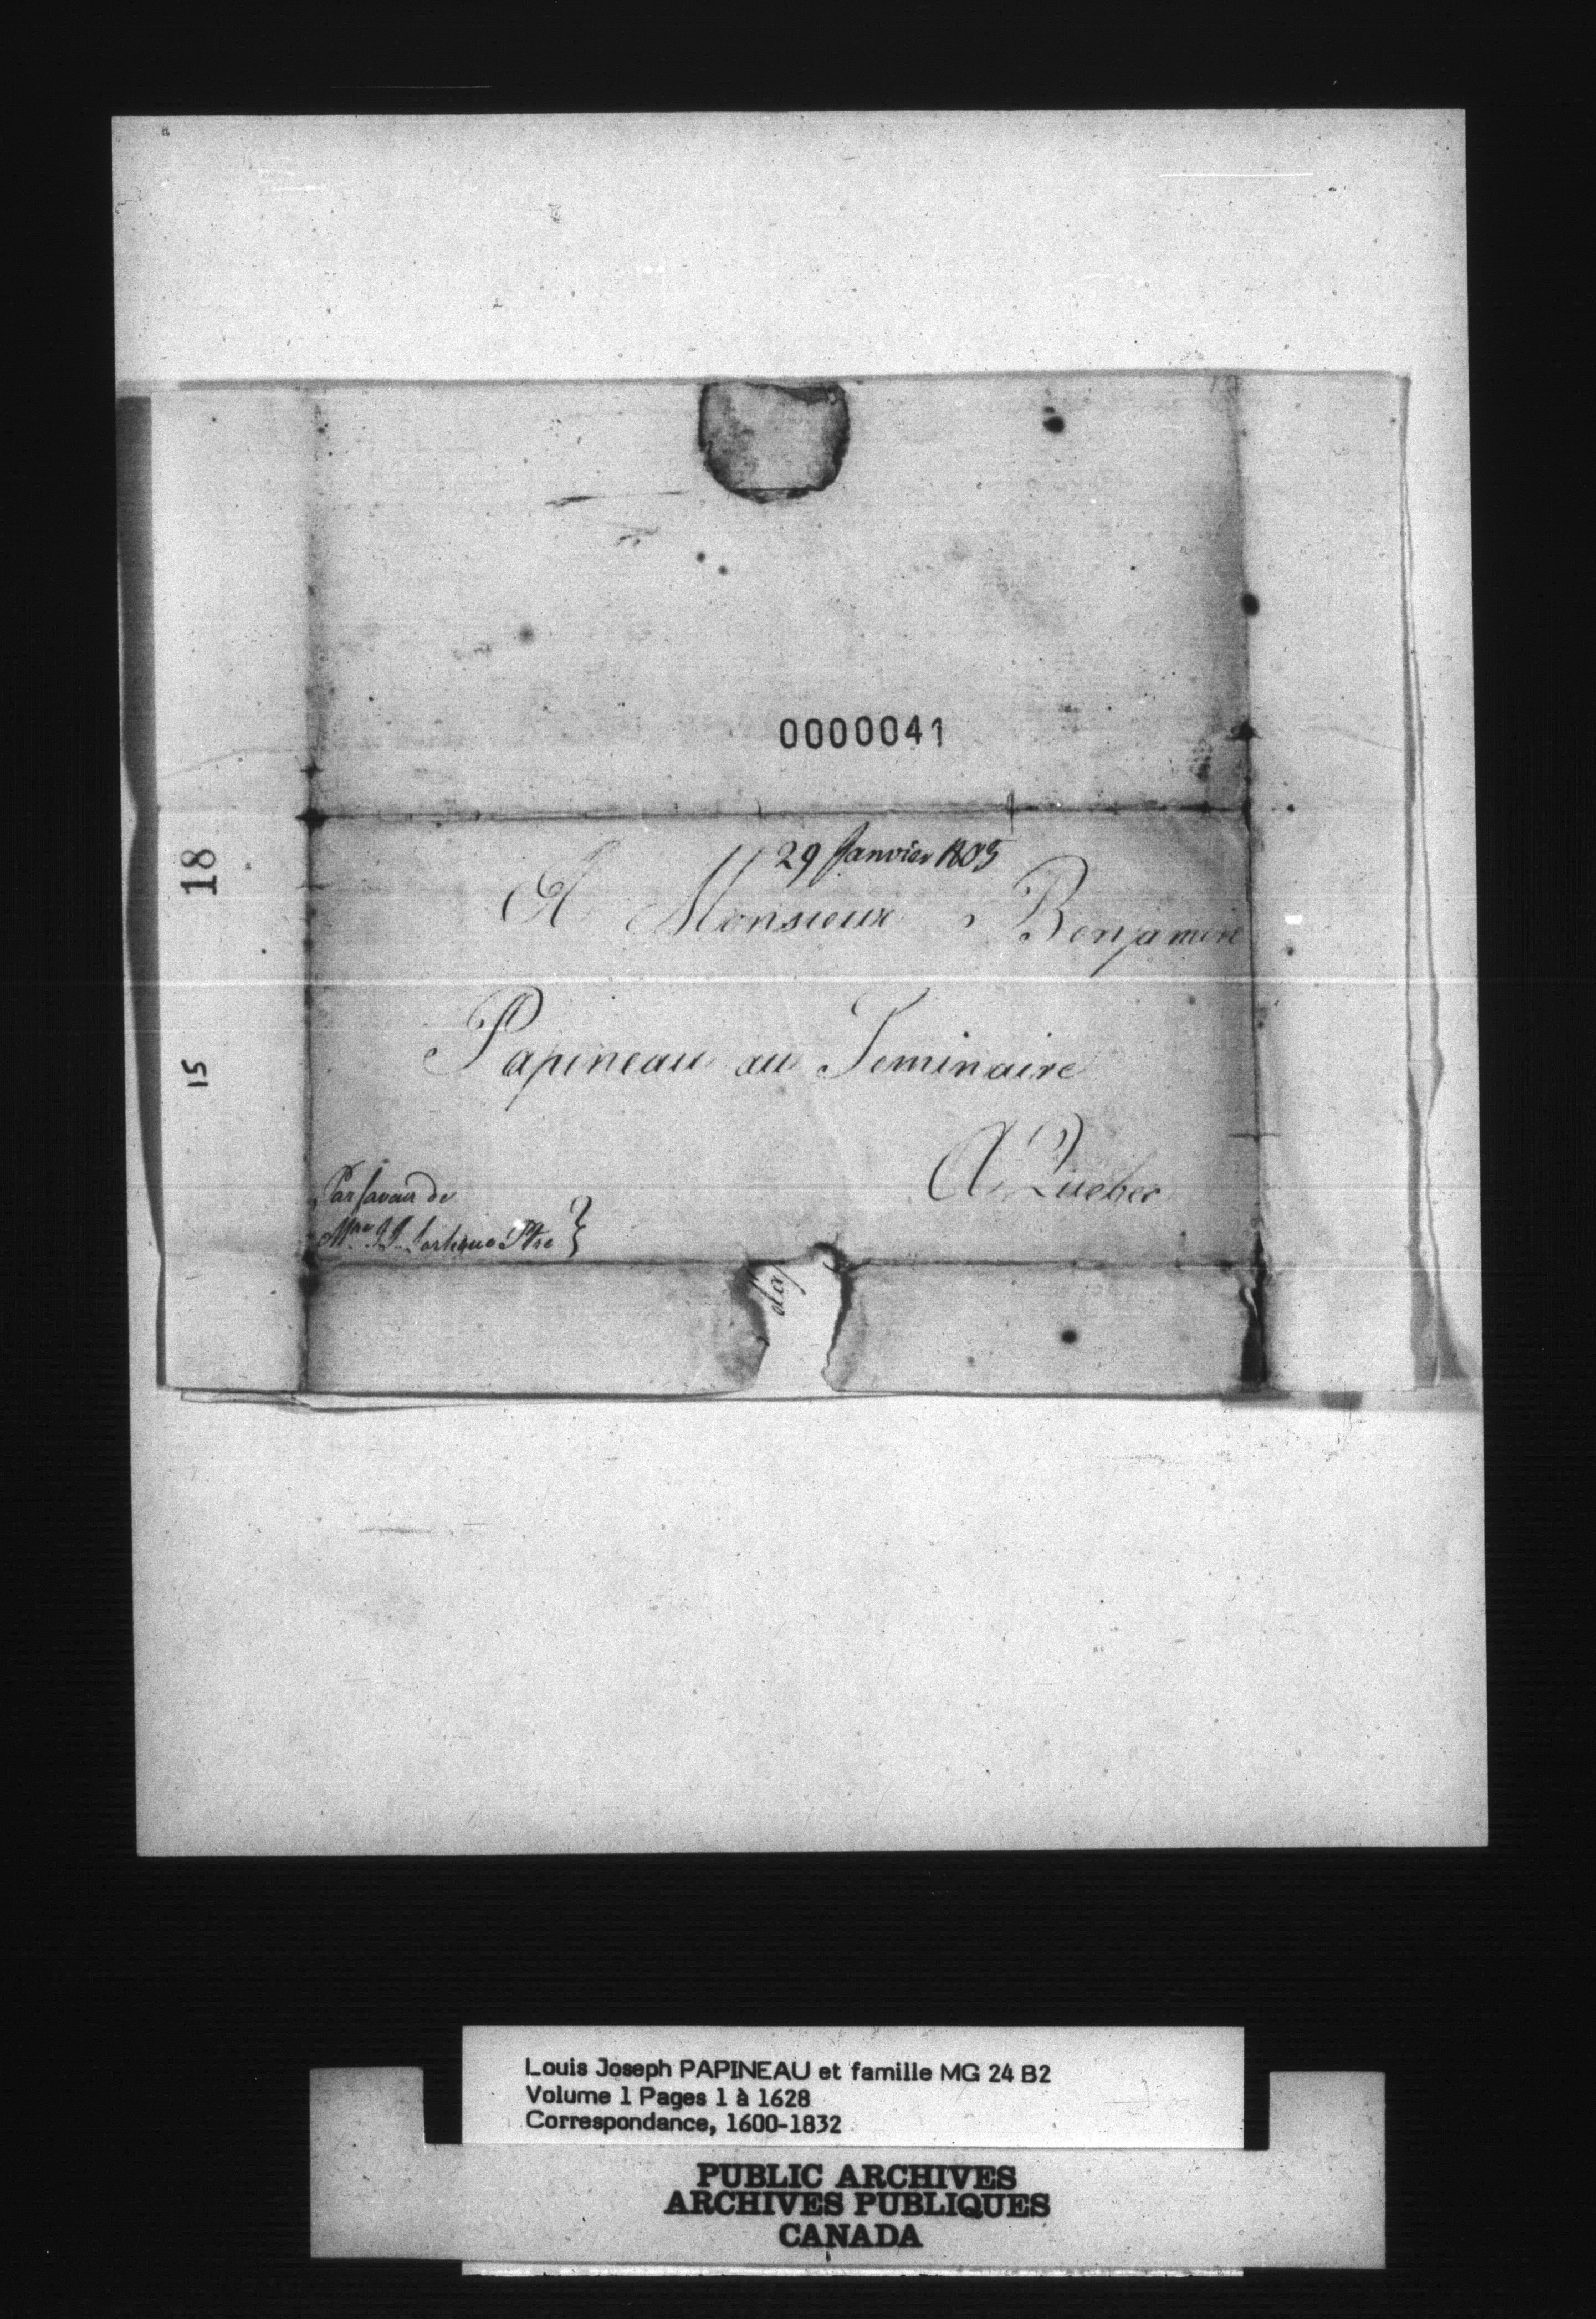 0000041
29 Janvier 1803
A Monsieur Benjamin
Papineau au Seminaire
A Quebec
Par faveur de
Mre J. J. Lartigue Ptre
18
15
Louis Joseph PAPINEAU et famille MG 24 B2
Volume 1 Pages 1 à 1628
Correspondance, 1600-1832
PUBLIC ARCHIVES
ARCHIVES PUBLIQUES
CANADA